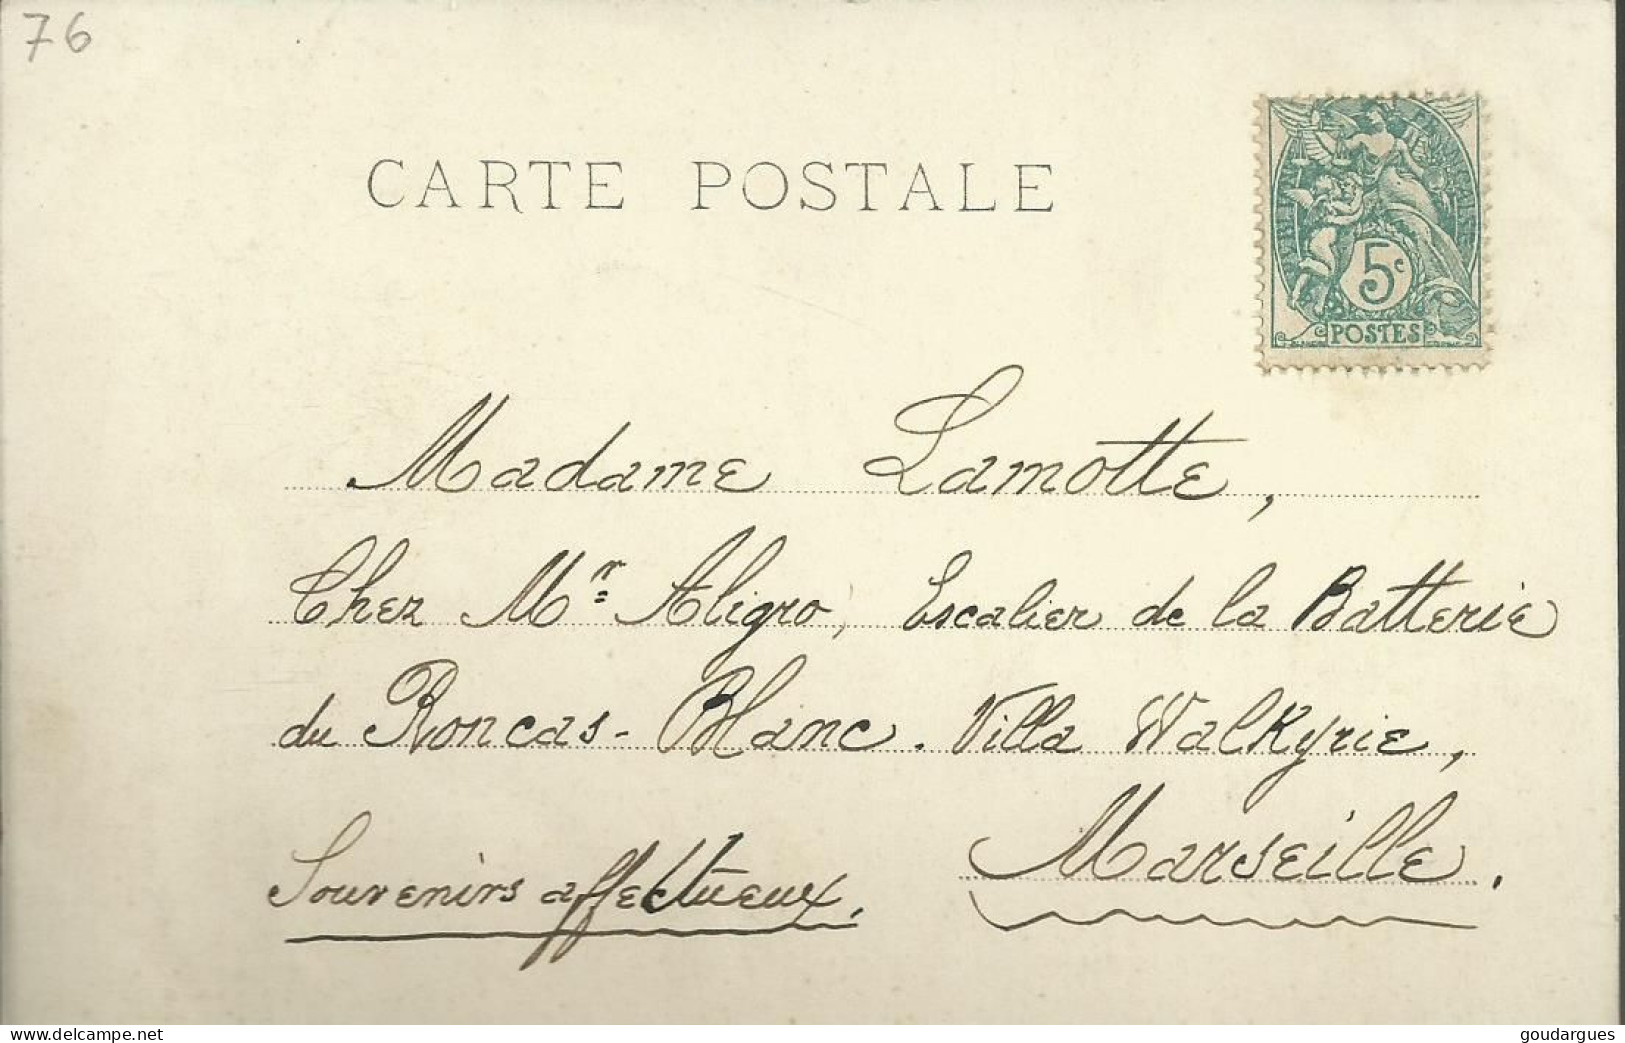 76
CARTE POSTALE
5c
POSTES
Madame Lamotte,
Chez Mr Aligro, Escalier de la Batterie
du Roncas-Blanc. Villa Walkyrie,
Marseille.
Souvenirs affectueux.
www.delcampe.net
goudargues